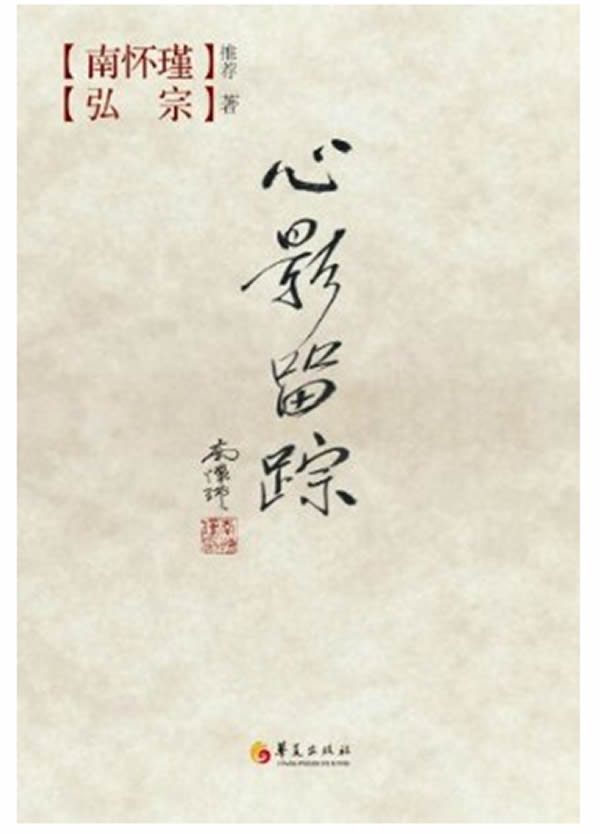 【南怀瑾】推荐
【弘 宗】著
心影留踪
南懷瑾
华夏出版社